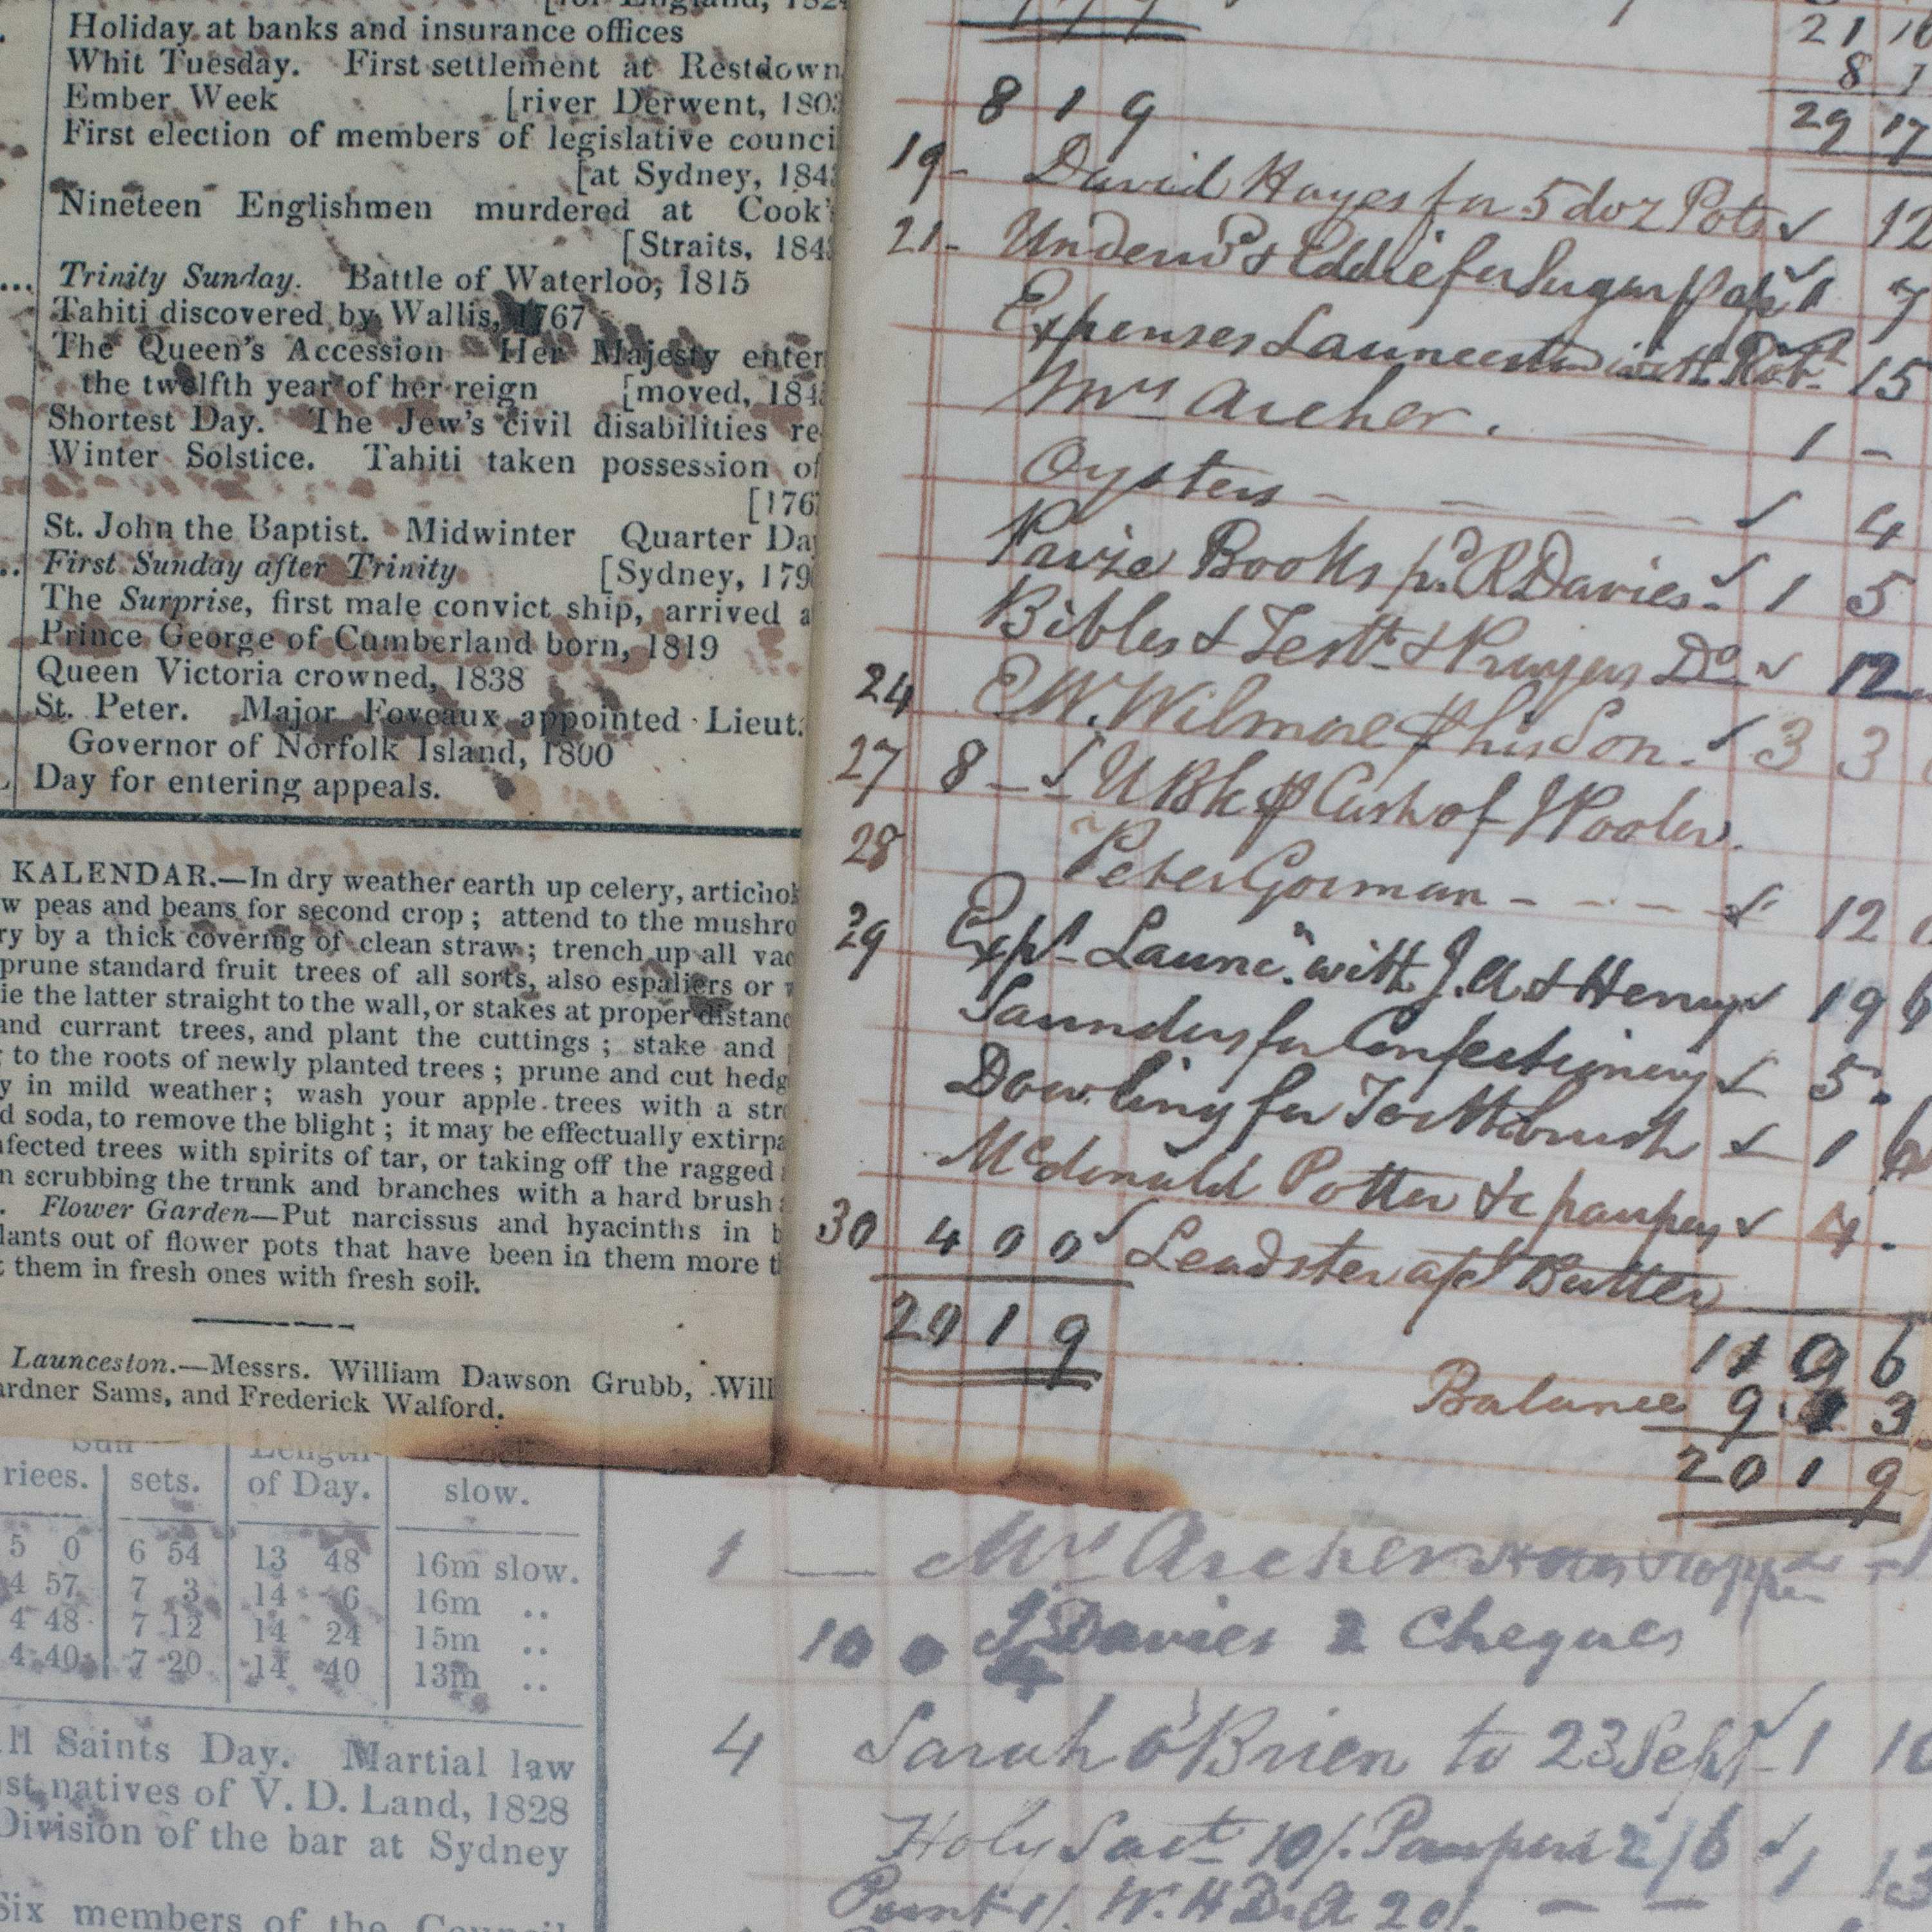 [for England, 182
Holiday at banks and insurance offices
Whit Tuesday. First settlement at Restdown
Ember Week [river Derwent, 180
First election of members of legislative counci
[at Sydney, 184
Nineteen Englishmen murdered at Cook'
[Straits, 184
... Trinity Sunday. Battle of Waterloo, 1815
Tahiti discovered by Wallis, 1767
The Queen's Accession Her Majesty enter
the twelfth year of her reign [moved, 184
Shortest Day. The Jew's civil disabilities re
Winter Solstice. Tahiti taken possession of
[176
St. John the Baptist. Midwinter Quarter Da
.. First Sunday after Trinity [Sydney, 179
The Surprise, first male convict ship, arrived a
Prince George of Cumberland born, 1819
Queen Victoria crowned, 1838
St. Peter. Major Foveaux appointed Lieut.
Governor of Norfolk Island, 1800
Day for entering appeals.
KALENDAR.—In dry weather earth up celery, artichok
w peas and beans for second crop; attend to the mushro
ry by a thick covering of clean straw; trench up all vac
prune standard fruit trees of all sorts, also espaliers or
ie the latter straight to the wall, or stakes at proper distanc
and currant trees, and plant the cuttings; stake and
to the roots of newly planted trees; prune and cut hedg
y in mild weather; wash your apple trees with a str
d soda, to remove the blight; it may be effectually extirpa
fected trees with spirits of tar, or taking off the ragged
n scrubbing the trunk and branches with a hard brush
. Flower Garden—Put narcissus and hyacinths in b
lants out of flower pots that have been in them more t
t them in fresh ones with fresh soil.
Launceston.—Messrs. William Dawson Grubb, Will
ardner Sams, and Frederick Walford.
riees. sets. of Day. slow.
5 0 6 54 13 48 16m slow.
4 57 7 3 14 6 16m ..
4 48 7 12 14 24 15m ..
4 40 7 20 14 40 13m ..
ll Saints Day. Martial law
st natives of V. D. Land, 1828
Division of the bar at Sydney
Six members of the Council
21 10
8 7
8 1 9 29 17
19- David Hayes for 5 doz Pots ✓ 12
21- Underwd & Eddie for Sugar 1 7
Expenses Launceston with Robt 15
Mrs Archer. 1 -
Oysters - - - - ✓ 4
Prize Books pd R Davies ✓ 1 5
Bibles & Testts & Prayers Do ✓ 12
24 E W. Wilmore his Son. ✓ 3 3
27 8 - ✓ U Bk Cash of J Pooler.
28 Peter Gorman - - - - ✓ 12
29 Exps Launc. with J. A & Henry ✓ 19 6
Saunders for Confectionery ✓ 5.
Dowling for Toothbrush ✓ 1 6
McDonald Potter &c paupers ✓ 4.
30 4 0 0 ✓ Leadster a/c Butter
20 1 9 11 0 6
Balance 9. 1 3
20 1 9
1 — Mrs Archer
10 0 Davies 2 Cheques
4 Sarah O'Brien to 23 Sept 1 10
Holy Sact 10/. Paupers 2/6 ✓ 1 13
W. H D. A 20/. — —